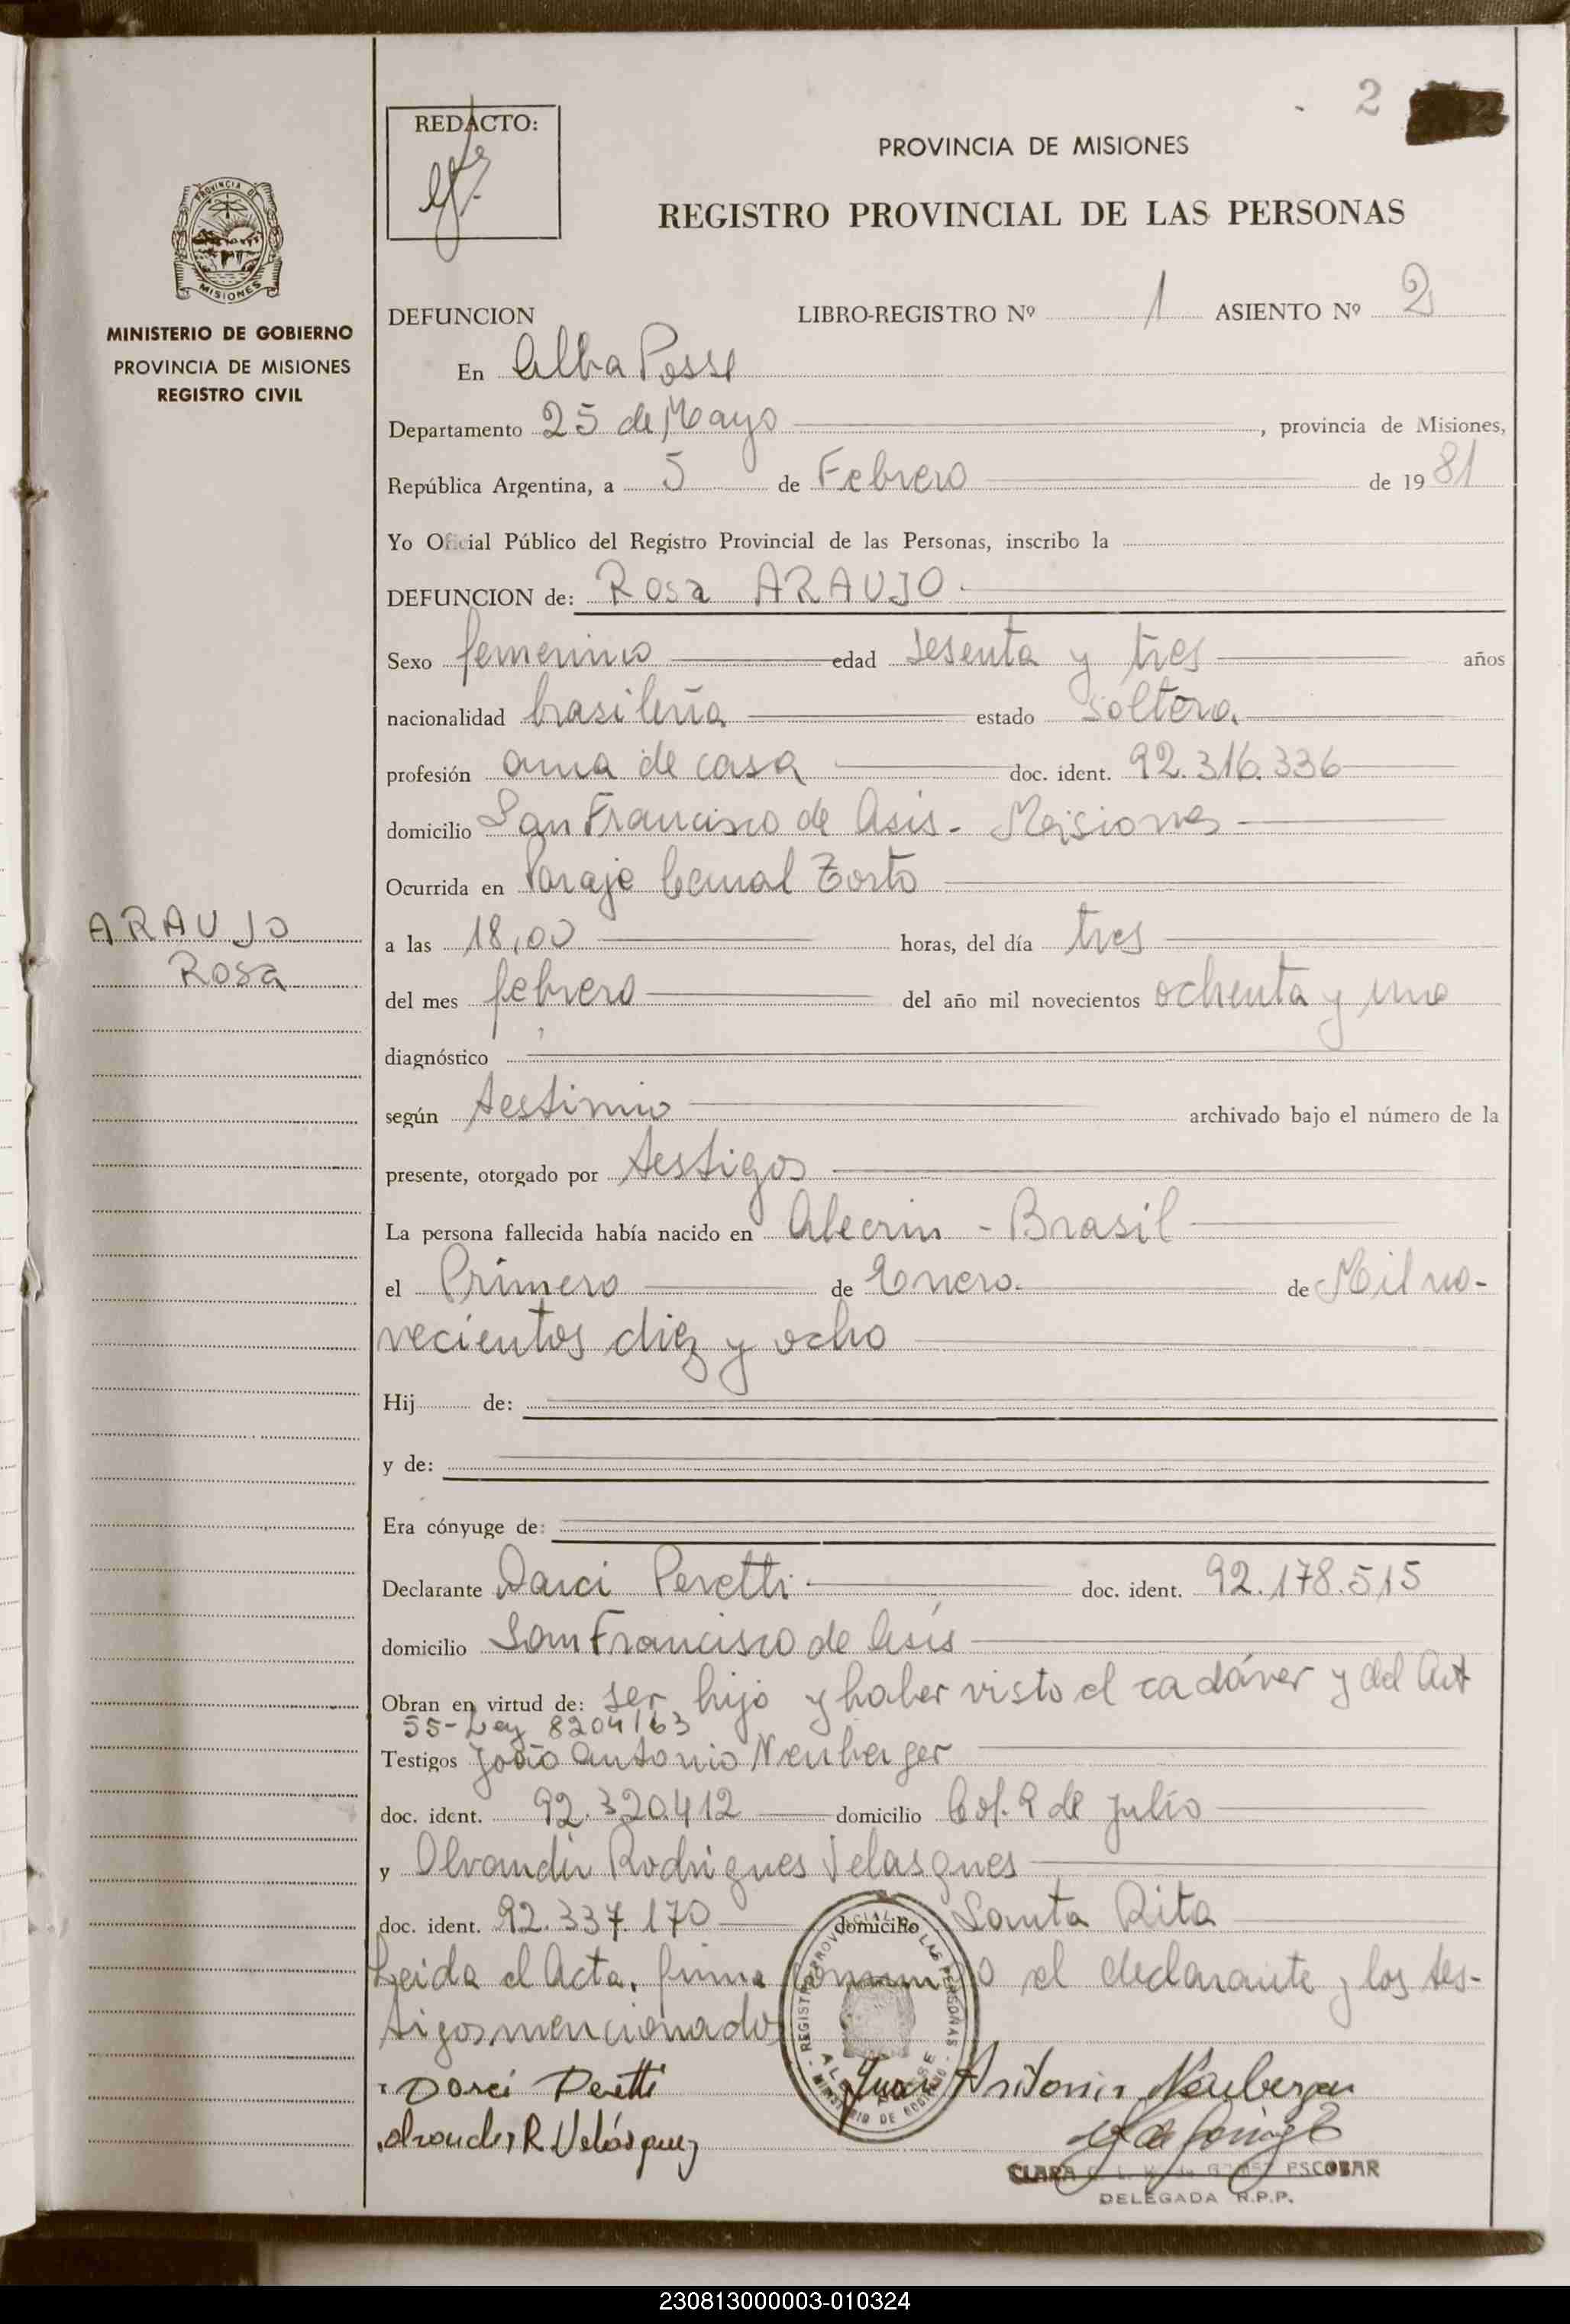 2
REDACTO:
PROVINCIA DE MISIONES
REGISTRO PROVINCIAL DE LAS PERSONAS
PROVINCIA DE
MISIONES
MINISTERIO DE GOBIERNO
PROVINCIA DE MISIONES
REGISTRO CIVIL
DEFUNCION LIBRO-REGISTRO Nº 1 ASIENTO Nº 2
En Alba Posse
Departamento 25 de Mayo, provincia de Misiones,
República Argentina, a 5 de Febrero de 1981
Yo Oficial Público del Registro Provincial de las Personas, inscribo la
DEFUNCION de: Rosa ARAUJO.
Sexo femenino edad sesenta y tres años
nacionalidad brasileña estado soltera.
profesión ama de casa doc. ident. 92.316.336
domicilio San Francisco de Asis - Misiones
Ocurrida en Paraje Canal Torto
ARAUJO
Rosa
a las 18,00 horas, del día tres
del mes febrero del año mil novecientos ochenta y uno
diagnóstico
según testimio archivado bajo el número de la
presente, otorgado por testigos
La persona fallecida había nacido en Alecrin - Brasil
el Primero de Enero. de Mil no-
vecientos diez y ocho
Hij de:
y de:
Era cónyuge de:
Declarante Darci Peretti doc. ident. 92.178.515
domicilio San Francisco de Asís
Obran en virtud de: ser hijo y haber visto el cadáver y del Art
55-Ley 8204/63
Testigos João Antonio Neuberger
doc. ident. 92.320.412 domicilio Col. 9 de Julio
y Olvandir Rodrigues Velasques
doc. ident. 92.337.170 domicilio Santa Rita
Leida el Acta, firma conmigo el declarante y los tes-
tigos mencionados
REGISTRO PROVINCIAL DE LAS PERSONAS
ALBA POSSE
MINISTERIO DE GOBIERNO
Darci Peretti Juan Antonio Neuberger
R. Velásquez
CLARA ESCOBAR
DELEGADA R.P.P.
230813000003-010324